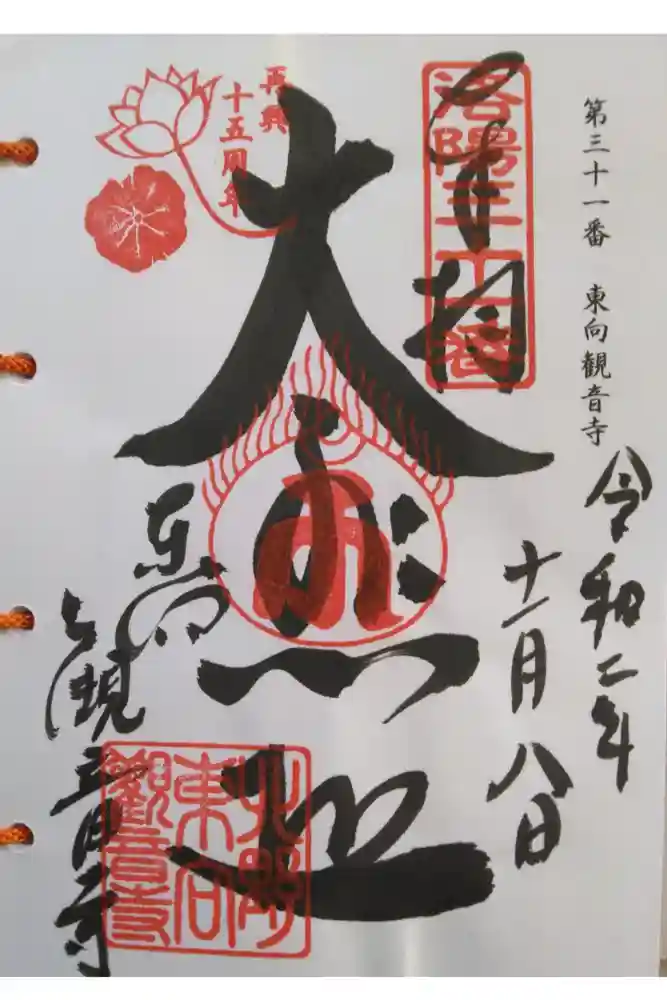 第三十一番 東向観音寺
令和二年
十一月八日
奉拝
洛陽三十一番
再興
十五周年
大悲
東向
観音寺
北野
東向
觀音寺